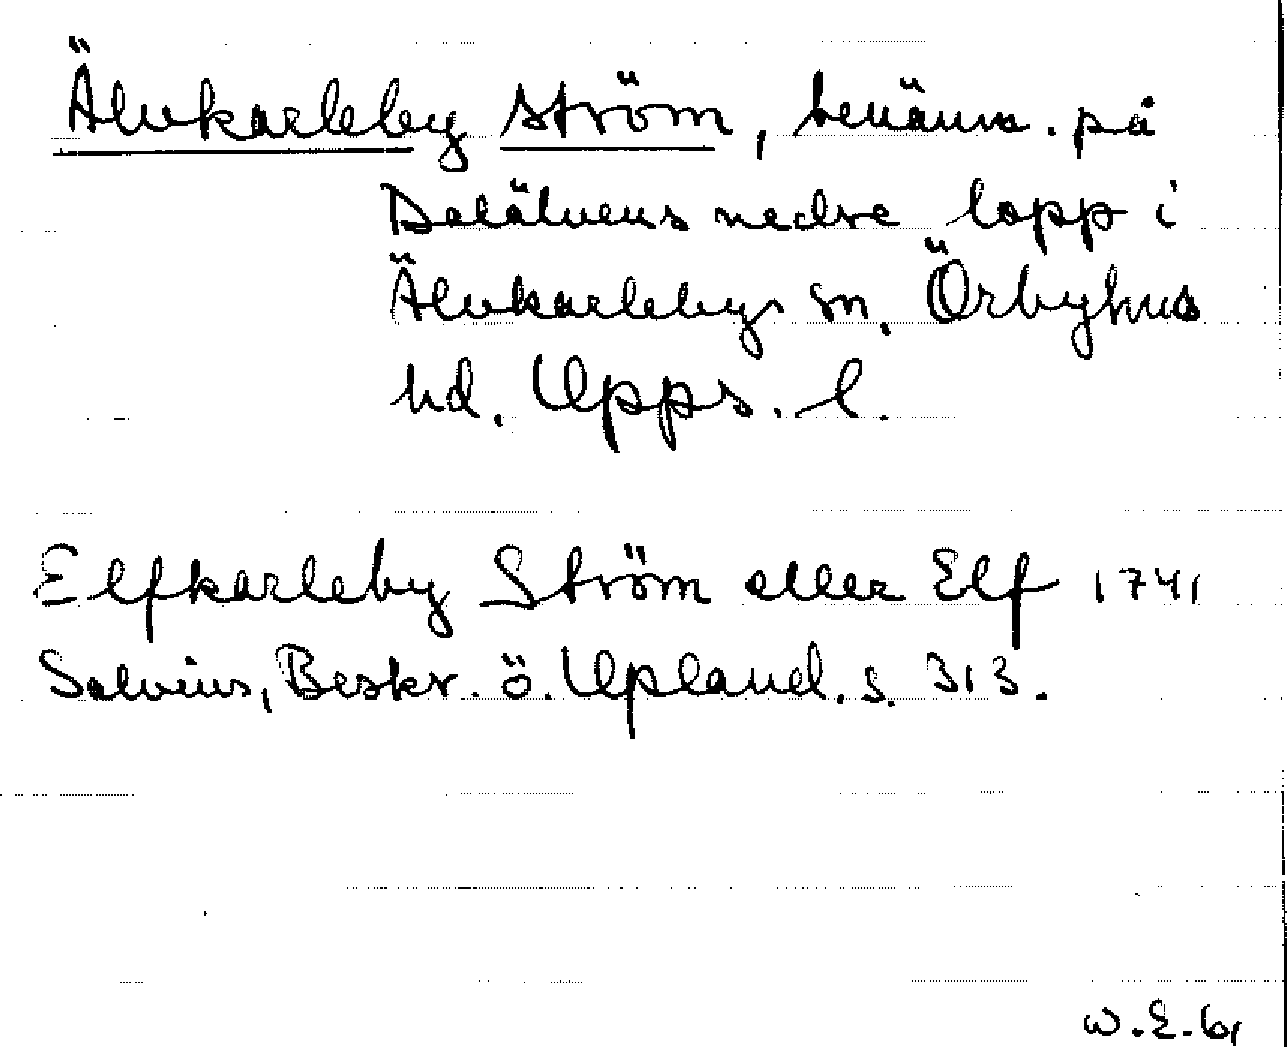 Älvkarleby ström, benämn. på
Dalälvens nedre lopp i
Älvkarlebys sn, Örbyhus
hd. Upps. l.
Elfkarleby Ström eller Elf 1741
Salvius, Beskr. ö. Upland. s. 313.
W.E. 61